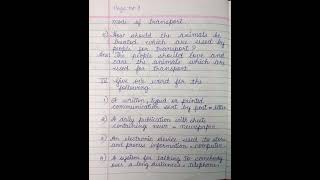 Page no 3
mode of transport.
c) How should the animals be
treated which are used by
people for transport?
Ans: The people should love and
care the animals which are
used for transport.
IV. Give one word for the
following.
1) A written, typed or printed
communication sent by post = letter.
2) A daily publication with sheets
containing news = newspaper.
3) An electronic device used to store
and process information = computer.
4) A system for talking to somebody
over a long distances = telephone.